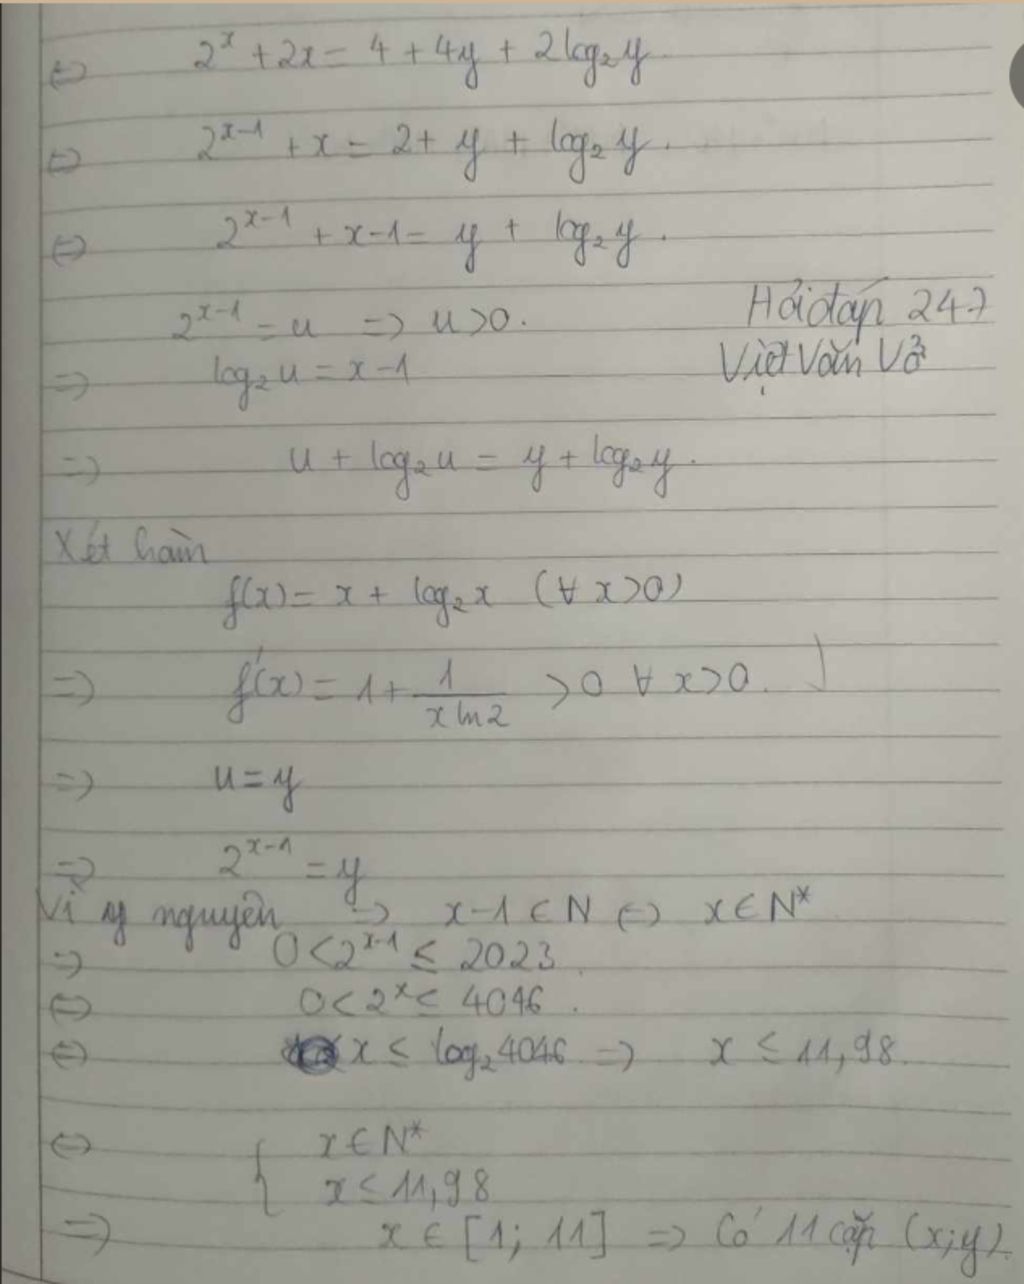 ⇔ 2^x + 2x = 4 + 4y + 2log₂y
⇔ 2^{x-1} + x = 2 + y + log₂y.
⇔ 2^{x-1} + x-1 = y + log₂y.
2^{x-1} = u ⇒ u>0.
Hỏi đáp 247
⇒ log₂u = x-1
Việt Văn Vở
⇒ u + log₂u = y + log₂y.
Xét hàm
f(x) = x + log₂x (∀ x>0)
⇒ f'(x) = 1 + \frac{1}{x ln2} >0 ∀ x>0.
⇒ u = y
⇒ 2^{x-1} = y
Vì y nguyên ⇒ x-1 ∈ N ⇔ x ∈ N*
⇒ 0 < 2^{x-1} ≤ 2023.
⇔ 0 < 2^x ≤ 4046.
⇔ x ≤ log₂4046 ⇒ x ≤ 11,98.
⇔ { x ∈ N*
x ≤ 11,98
⇒ x ∈ [1; 11] ⇒ Có 11 cặp (x;y).